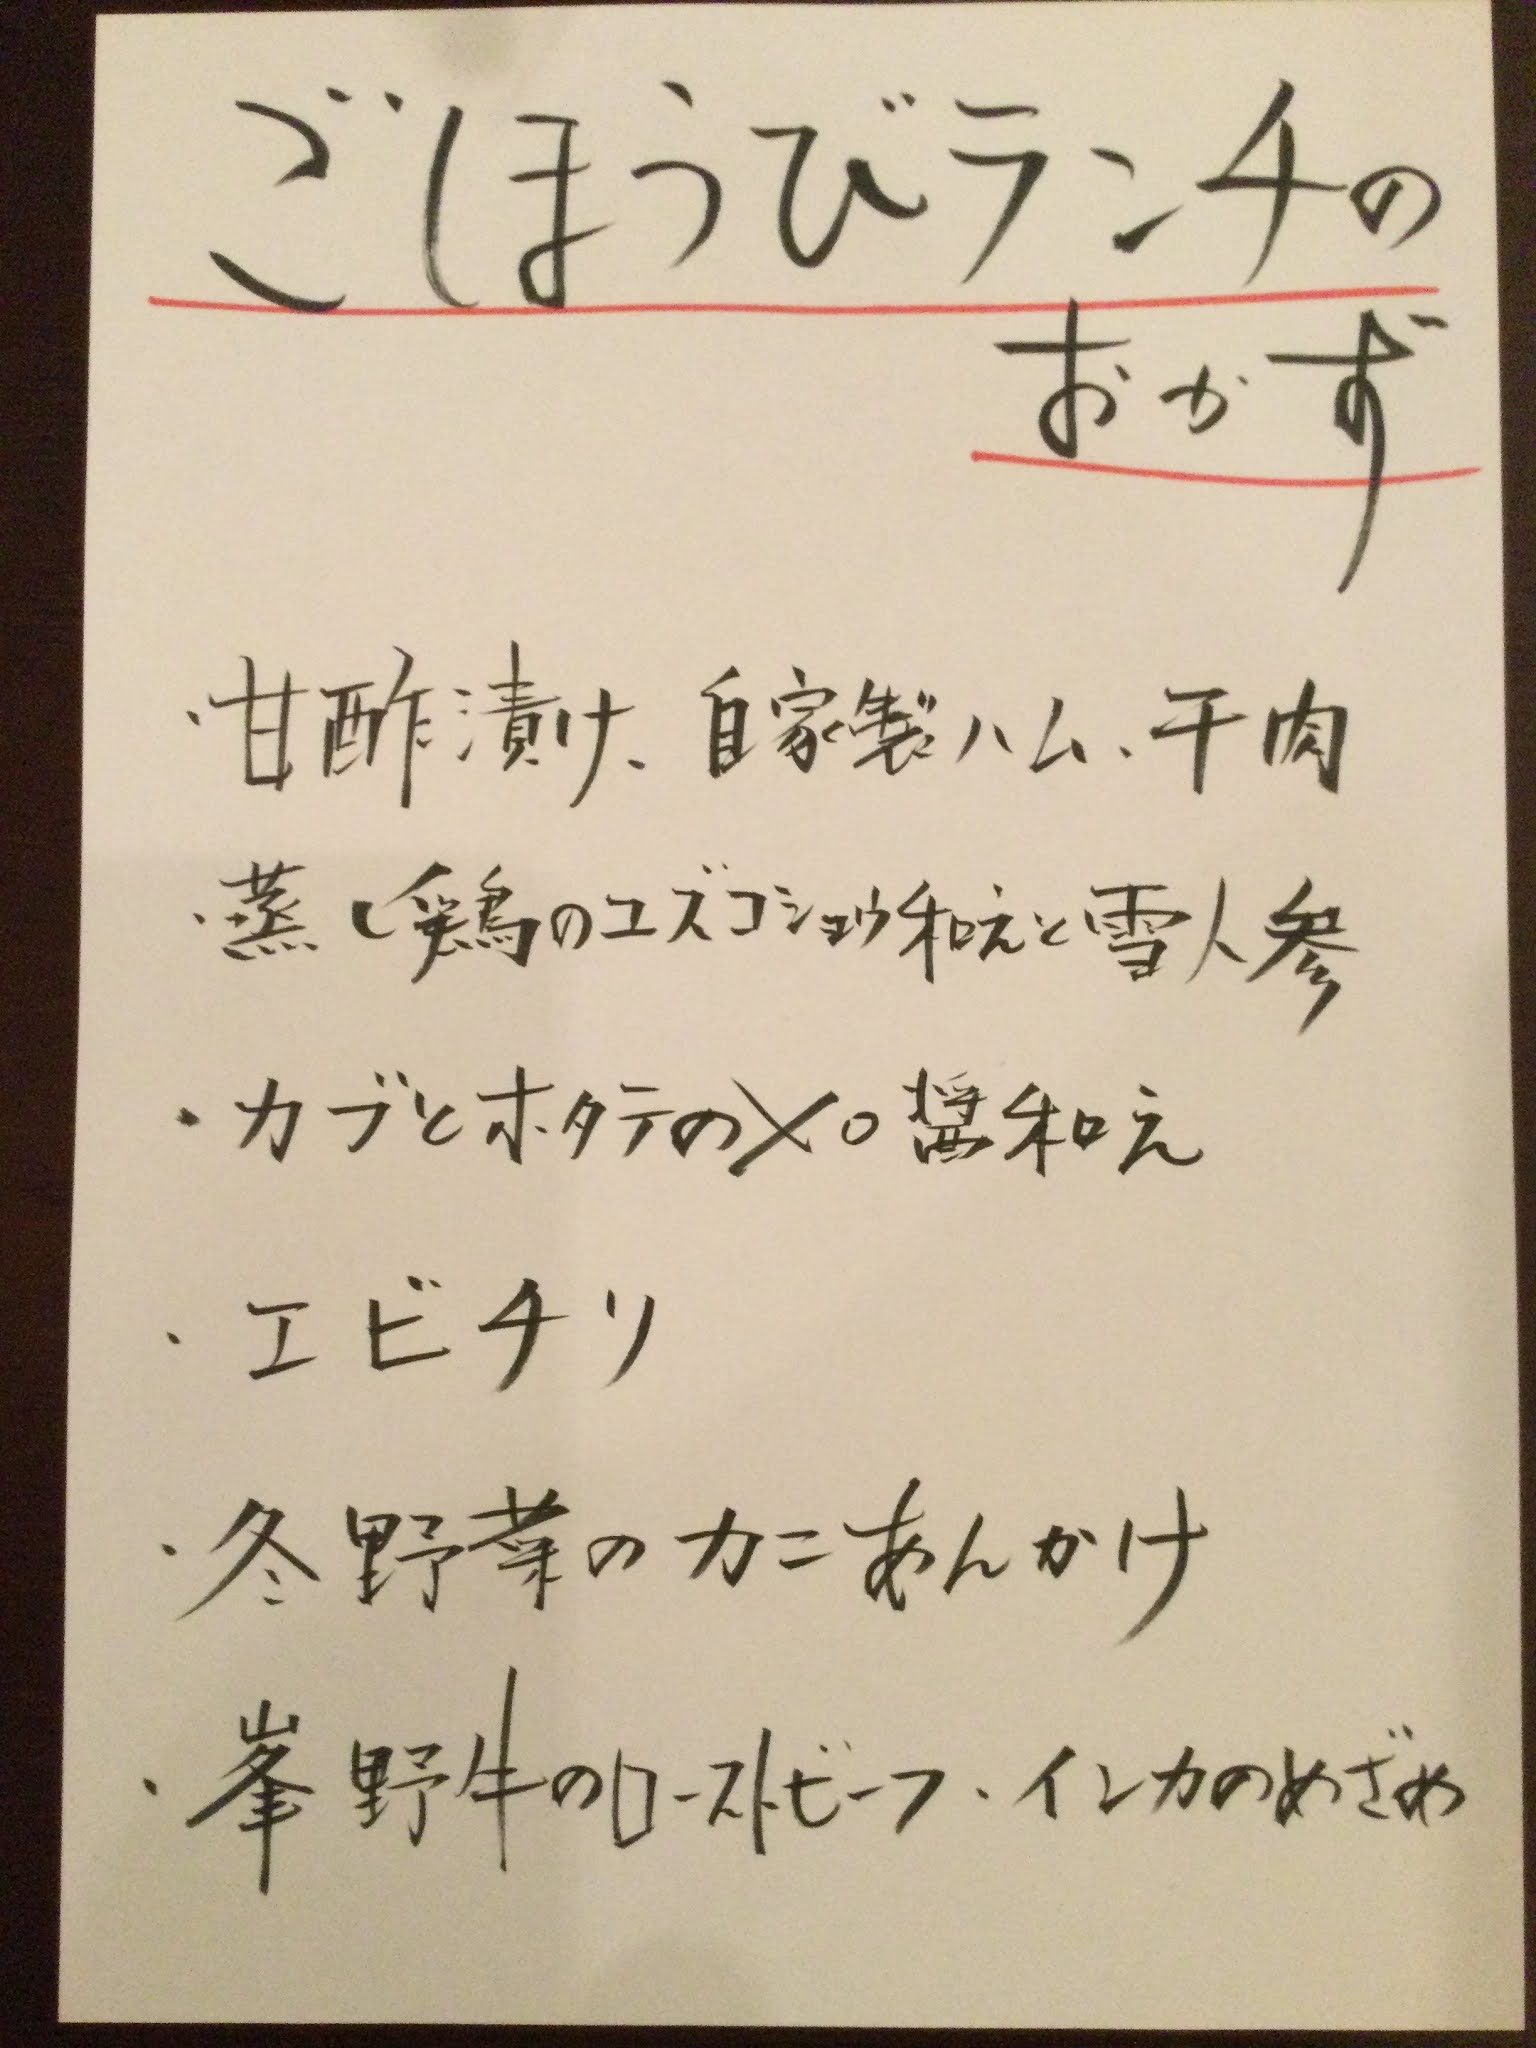 ごほうびランチの
おかず
・甘酢漬け、自家製ハム、干肉
・蒸し鶏のユズコショウ和えと雪人参
・カブとホタテのXO醤和え
・エビチリ
・冬野菜のカニあんかけ
・峯野牛のローストビーフ、インカのめざめ